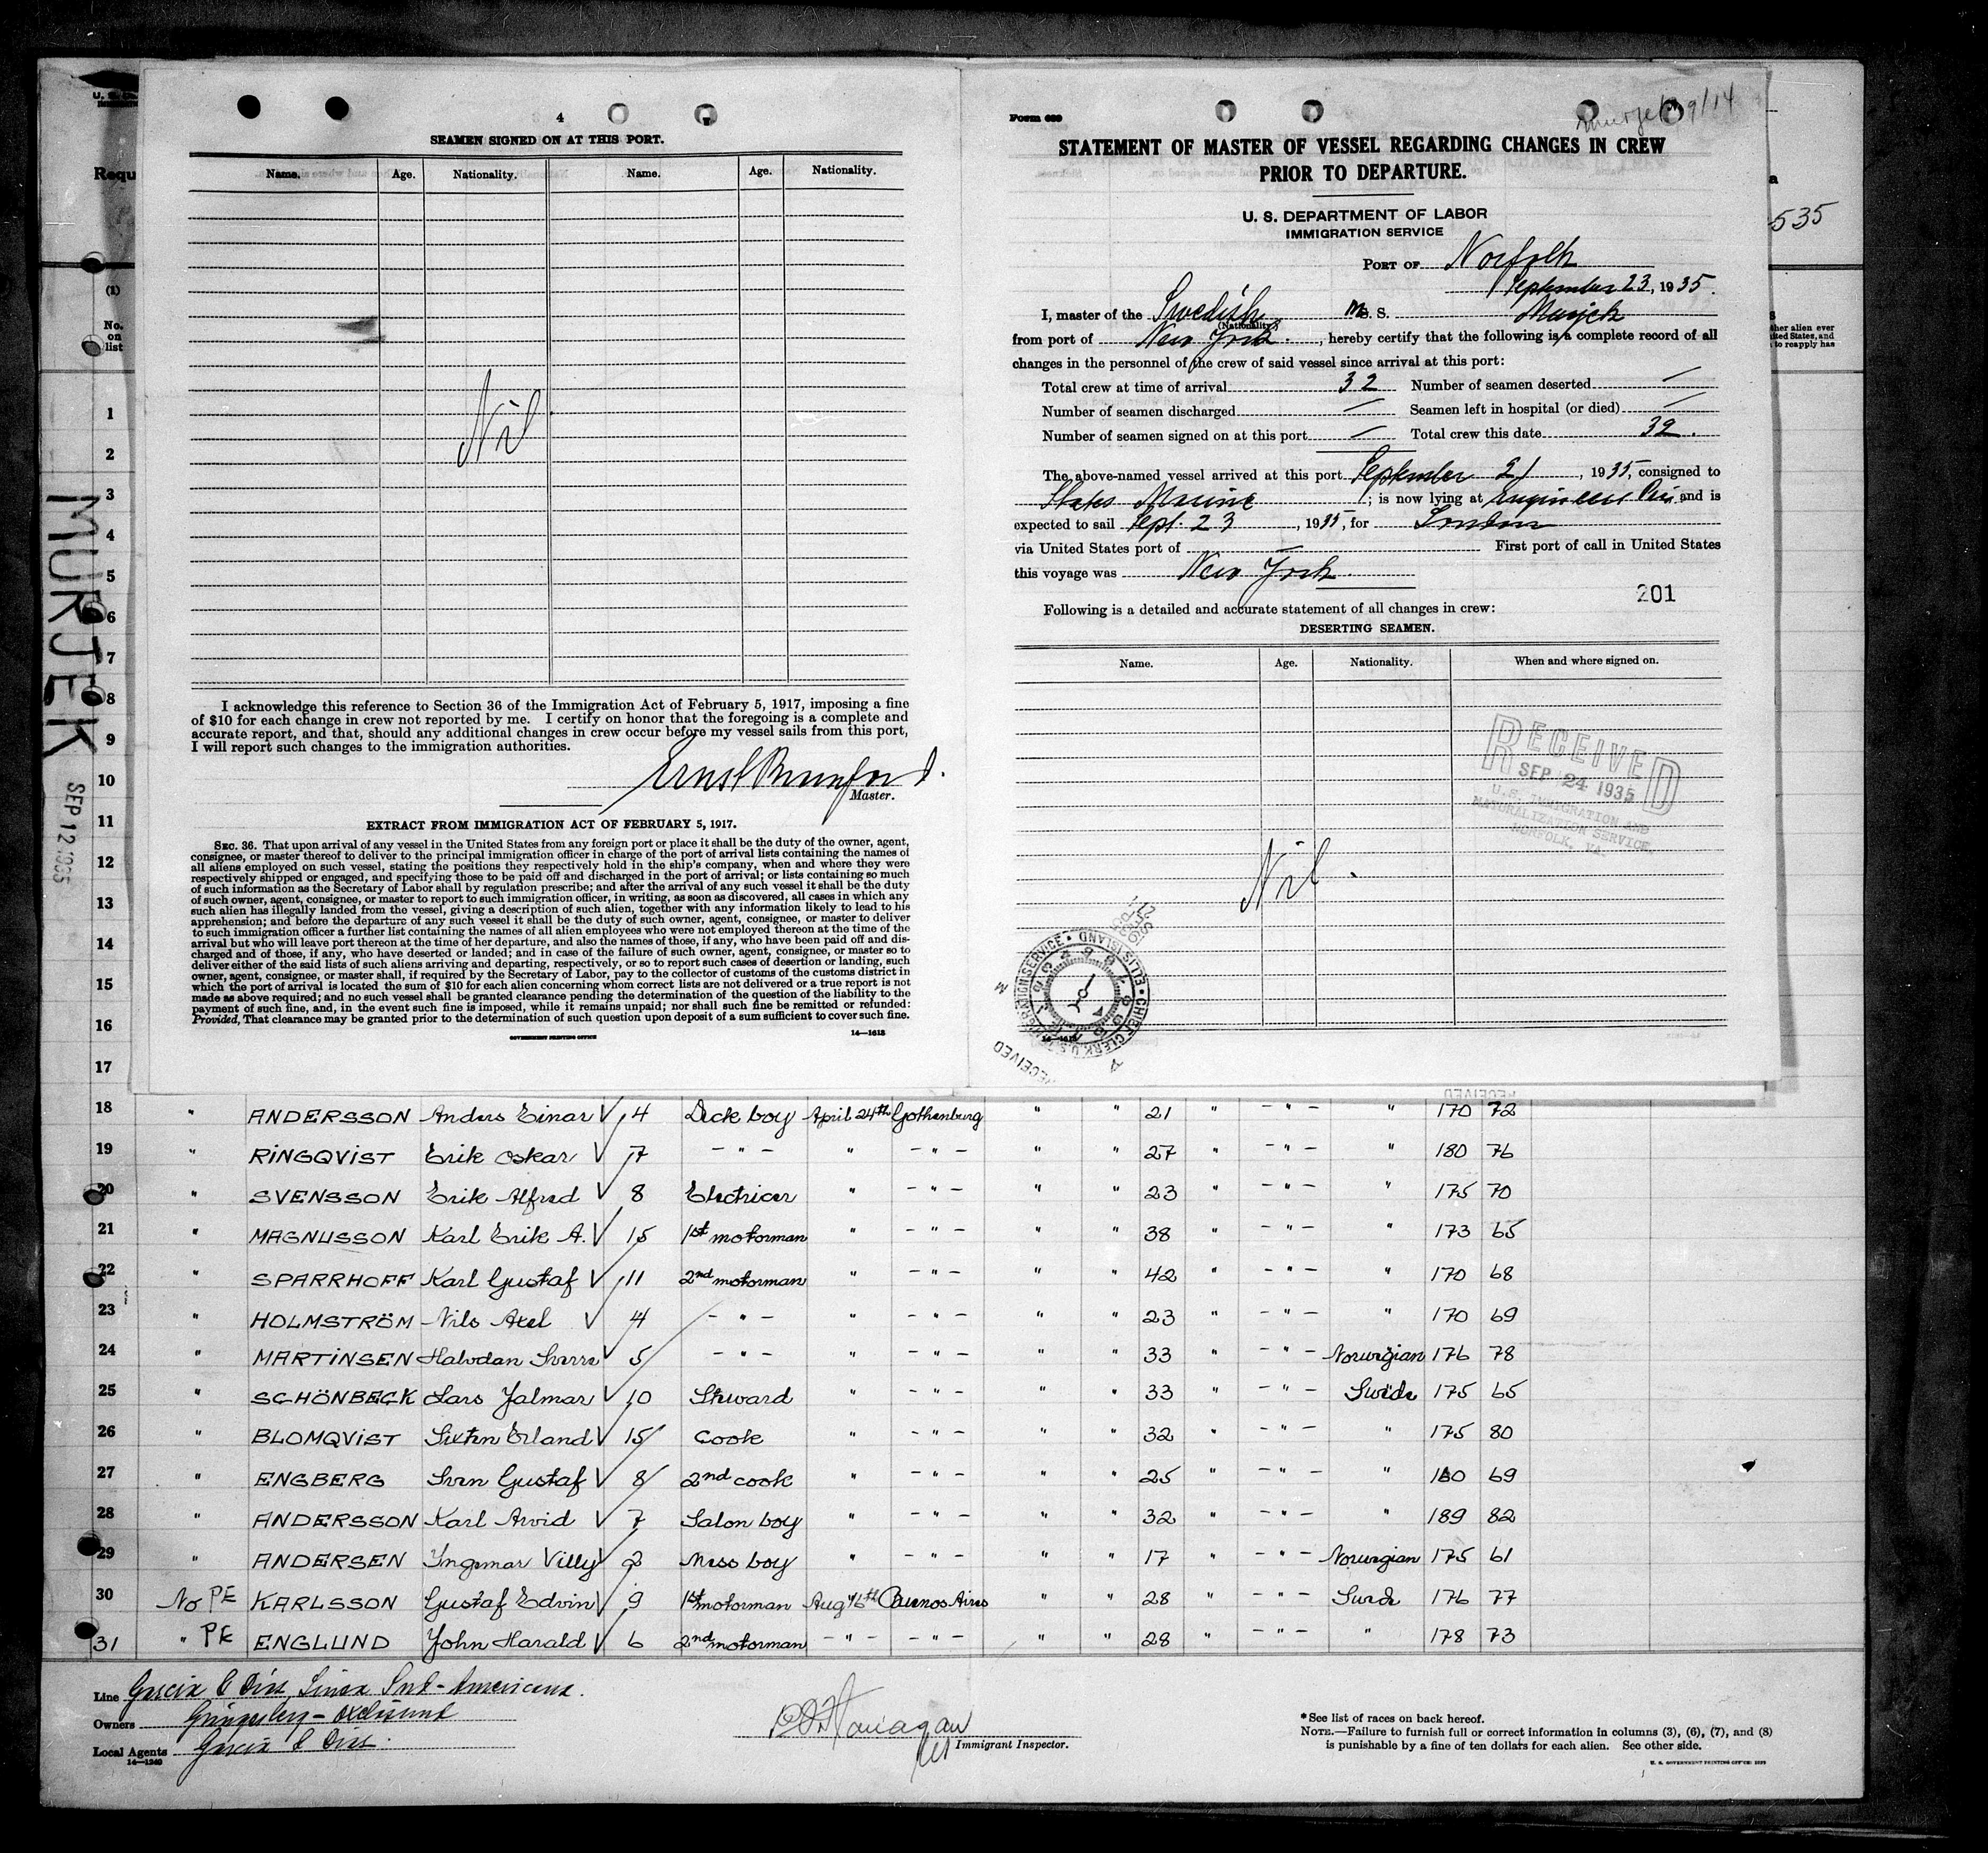 4
SEAMEN SIGNED ON AT THIS PORT.
Name. Age. Nationality. Name. Age. Nationality.
Nil
I acknowledge this reference to Section 36 of the Immigration Act of February 5, 1917, imposing a fine
of $10 for each change in crew not reported by me. I certify on honor that the foregoing is a complete and
accurate report, and that, should any additional changes in crew occur before my vessel sails from this port,
I will report such changes to the immigration authorities.
Master.
EXTRACT FROM IMMIGRATION ACT OF FEBRUARY 5, 1917.
SEC. 36. That upon arrival of any vessel in the United States from any foreign port or place it shall be the duty of the owner, agent,
consignee, or master thereof to deliver to the principal immigration officer in charge of the port of arrival lists containing the names of
all aliens employed on such vessel, stating the positions they respectively hold in the ship's company, when and where they were
respectively shipped or engaged, and specifying those to be paid off and discharged in the port of arrival; or lists containing so much
of such information as the Secretary of Labor shall by regulation prescribe; and after the arrival of any such vessel it shall be the duty
of such owner, agent, consignee, or master to report to such immigration officer, in writing, as soon as discovered, all cases in which any
such alien has illegally landed from the vessel, giving a description of such alien, together with any information likely to lead to his
apprehension; and before the departure of any such vessel it shall be the duty of such owner, agent, consignee, or master to deliver
to such immigration officer a further list containing the names of all alien employees who were not employed thereon at the time of the
arrival but who will leave port thereon at the time of her departure, and also the names of those, if any, who have been paid off and dis-
charged and of those, if any, who have deserted or landed; and in case of the failure of such owner, agent, consignee, or master so to
deliver either of the said lists of such aliens arriving and departing, respectively, or so to report such cases of desertion or landing, such
owner, agent, consignee, or master shall, if required by the Secretary of Labor, pay to the collector of customs of the customs district in
which the port of arrival is located the sum of $10 for each alien concerning whom correct lists are not delivered or a true report is not
made as above required; and no such vessel shall be granted clearance pending the determination of the question of the liability to the
payment of such fine, and, in the event such fine is imposed, while it remains unpaid; nor shall such fine be remitted or refunded:
Provided, That clearance may be granted prior to the determination of such question upon deposit of a sum sufficient to cover such fine.
GOVERNMENT PRINTING OFFICE 14—1613
Form 689
9/14
STATEMENT OF MASTER OF VESSEL REGARDING CHANGES IN CREW
PRIOR TO DEPARTURE.
U. S. DEPARTMENT OF LABOR
IMMIGRATION SERVICE
PORT OF Norfolk
September 23, 1935.
I, master of the Swedish M. S. Murjek
(Nationality)
from port of New York, hereby certify that the following is a complete record of all
changes in the personnel of the crew of said vessel since arrival at this port:
Total crew at time of arrival 32 Number of seamen deserted —
Number of seamen discharged — Seamen left in hospital (or died) —
Number of seamen signed on at this port — Total crew this date 32.
The above-named vessel arrived at this port September 21, 1935, consigned to
States Marine; is now lying at Engineers Pier and is
expected to sail Sept. 23, 1935, for London
via United States port of — First port of call in United States
this voyage was New York.
201
Following is a detailed and accurate statement of all changes in crew:
DESERTING SEAMEN.
Name. Age. Nationality. When and where signed on.
RECEIVED
SEP 24 1935
U.S. IMMIGRATION AND
NATURALIZATION SERVICE
NORFOLK, VA.
Nil.
CHIEF CLERK, U.S. IMMIGRATION SERVICE • ELLIS ISLAND •
RECEIVED
14—1613
U. S.
Requ
(1)
No.
on
list
535
ther alien ever
ited States, and
to reapply has
MURJEK
SEP 12 1935
1
2
3
4
5
6
7
8
9
10
11
12
13
14
15
16
17
18 " ANDERSSON Anders Einar √ 4 Deck boy April 24th Gothenburg " " 21 " - " - " 170 72
19 " RINGQVIST Erik Oskar √ 7 - " - " - " - " " 27 " - " - " 180 76
20 " SVENSSON Erik Alfred √ 8 Electricer " - " - " " 23 " - " - " 175 70
21 " MAGNUSSON Karl Erik A. √ 15 1st motorman " - " - " " 38 " - " - " 173 65
22 " SPARRHOFF Karl Gustaf √ 11 2nd motorman " - " - " " 42 " - " - " 170 68
23 " HOLMSTRÖM Nils Axel √ 4 - " - " - " - " " 23 " - " - " 170 69
24 " MARTINSEN Halvdan Sverre √ 5 - " - " - " - " " 33 " - " - Norwegian 176 78
25 " SCHÖNBECK Lars Jalmar √ 10 Steward " - " - " " 33 " - " - Swede 175 65
26 " BLOMQVIST Sixten Erland √ 15 Cook " - " - " " 32 " - " - " 175 80
27 " ENGBERG Sven Gustaf √ 8 2nd cook " - " - " " 25 " - " - " 180 69
28 " ANDERSSON Karl Arvid √ 7 Salon boy " - " - " " 32 " - " - " 189 82
29 " ANDERSEN Yngemar Villy √ 2 Mess boy " - " - " " 17 " - " - Norwegian 175 61
30 No PE KARLSSON Gustaf Edvin √ 9 1st motorman Aug 16th Buenos Aires " " 28 " - " - Swede 176 77
31 " PE ENGLUND John Harald √ 6 2nd motorman - " - - " - " " 28 " - " - " 178 73
Line Garcia & Dias, Linea Sud-Americana.
Owners
Local Agents Garcia & Dias.
14—1240
Immigrant Inspector.
* See list of races on back hereof.
NOTE.—Failure to furnish full or correct information in columns (3), (6), (7), and (8)
is punishable by a fine of ten dollars for each alien. See other side.
U. S. GOVERNMENT PRINTING OFFICE: 1933